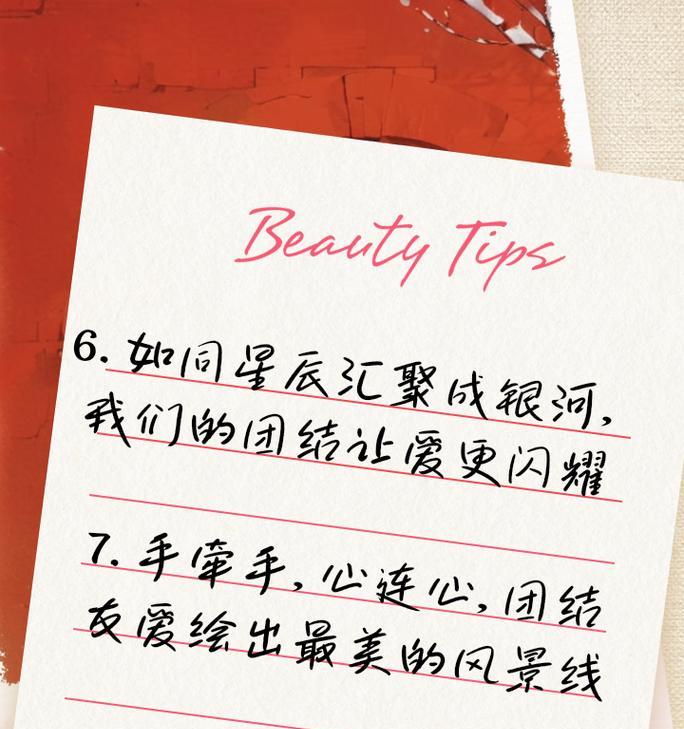 Beauty Tips
6. 如同星辰汇聚成银河,
我们的团结让爱更闪耀
7. 手牵手,心连心,团结
友爱绘出最美的风景线